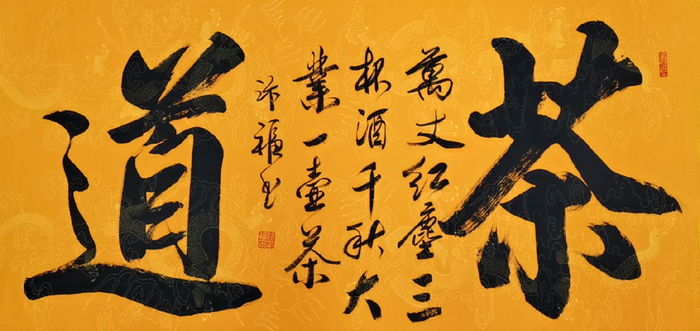 茶
萬丈红塵三
杯酒千秋大
業一壶茶
福
道